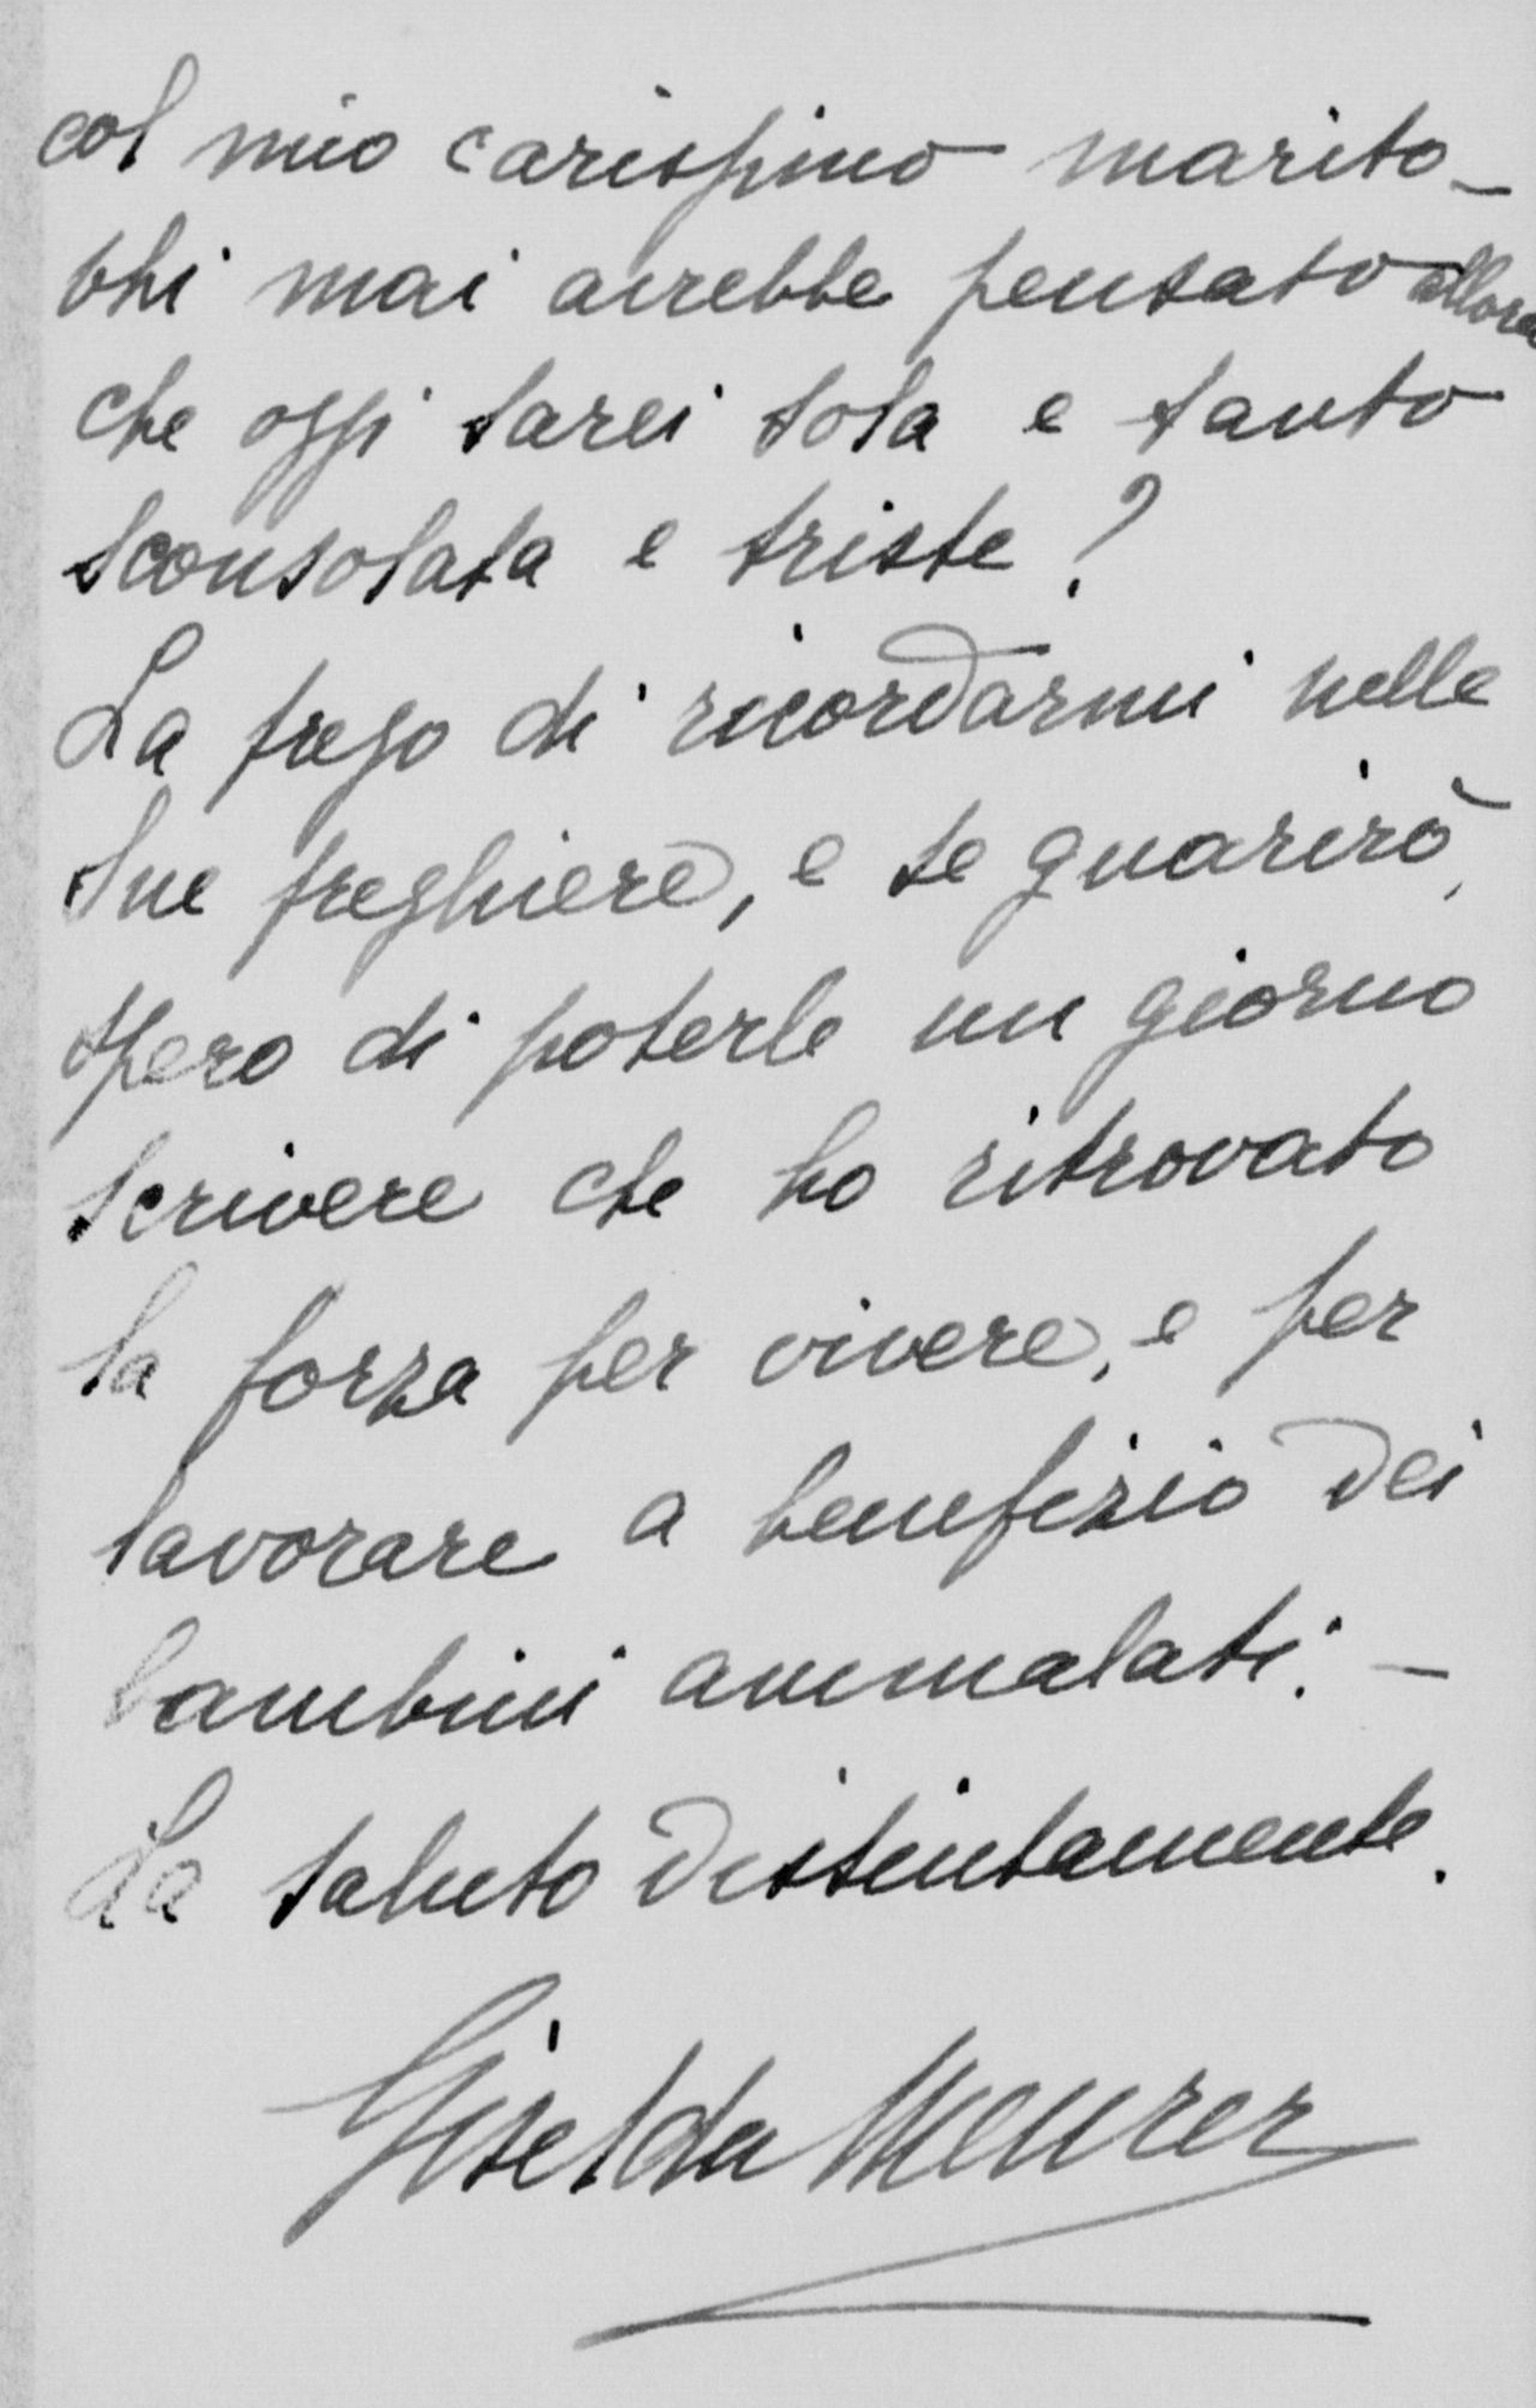 col mio carissimo marito_
Chi mai avrebbe pensato allora
che oggi sarei sola e tanto
sconsolata e triste?
La prego di ricordarmi nelle
Sue preghiere, e se guarirò,
spero di poterle un giorno
scrivere che ho ritrovato
la forza per vivere, e per
lavorare a benefizio dei
bambini ammalati. –
La saluto distintamente.
Giselda Meurer